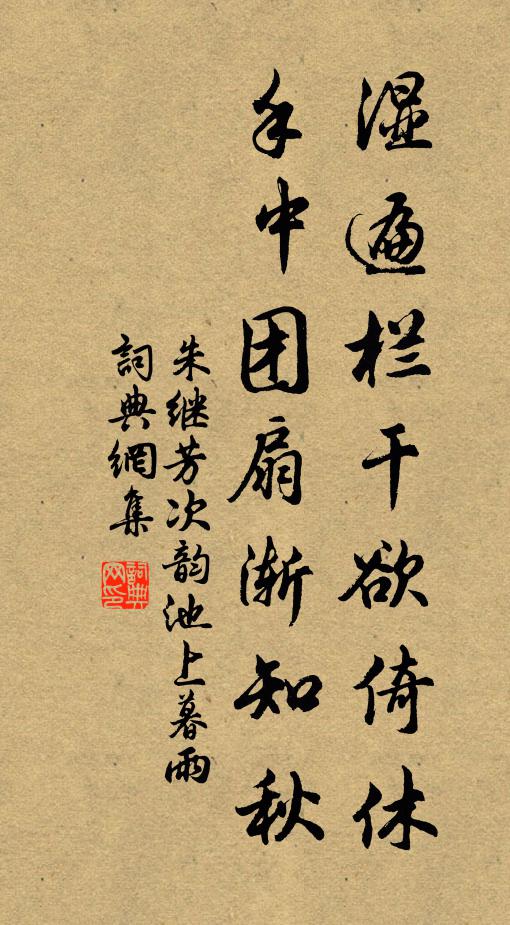 湿遍栏干欲倚休
手中团扇渐知秋
朱继芳次韵池上暮雨
詞典網集
詞典网印